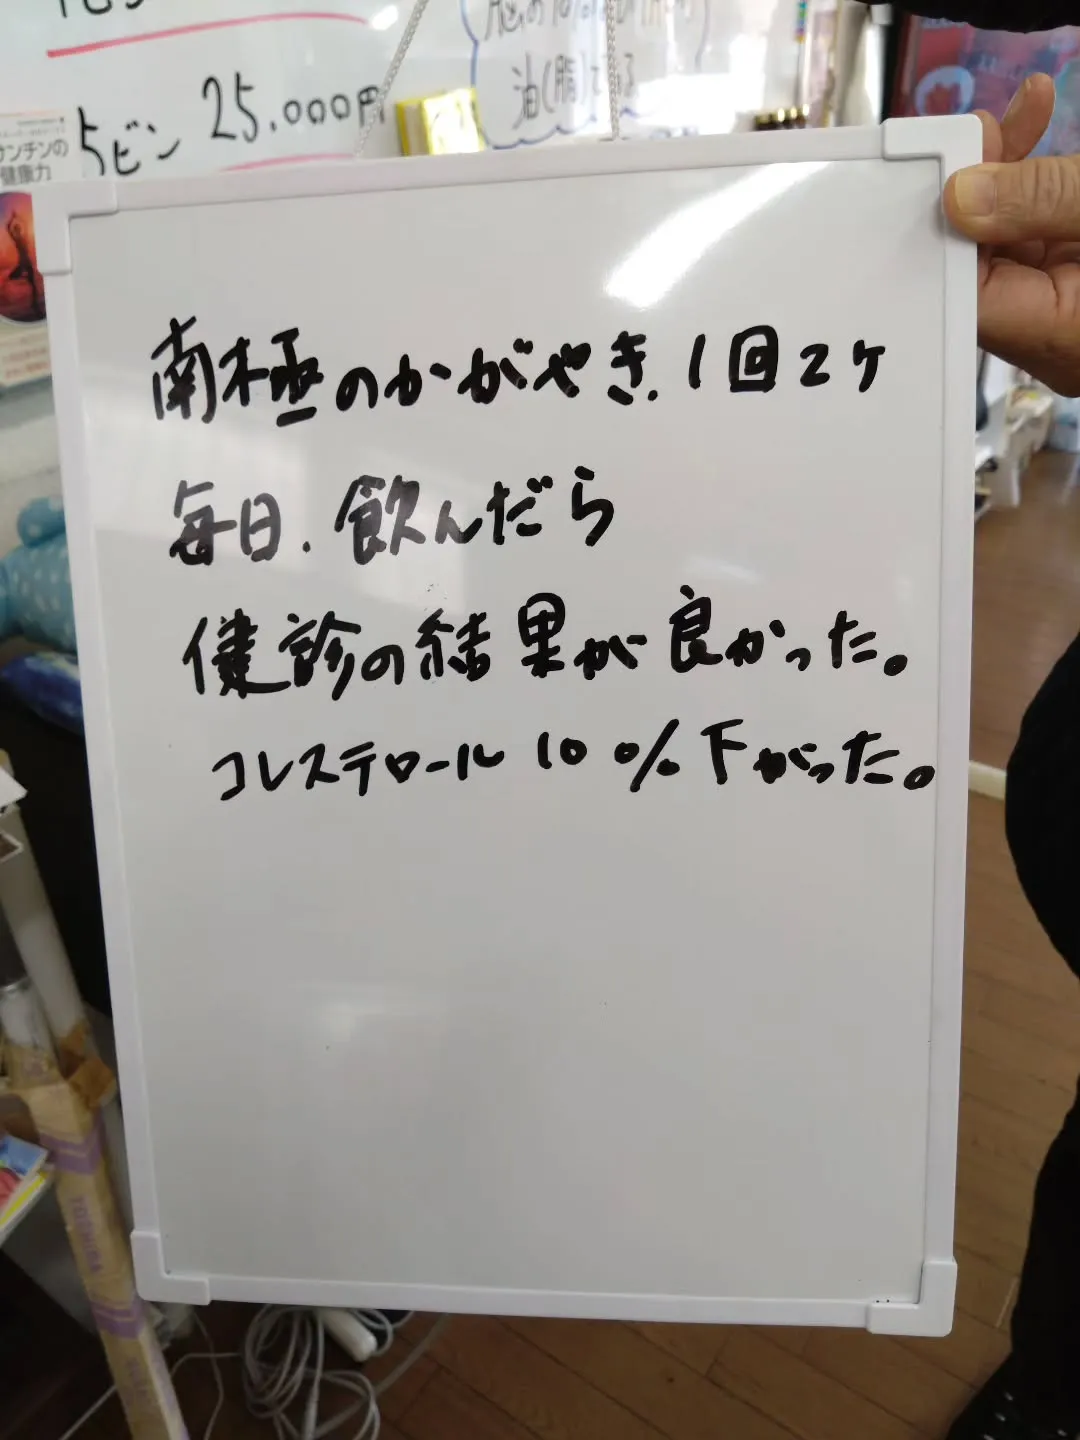 5ビン 25,000円
油(脂)である
健康力
南極のかがやき.1回2ケ
毎日.飲んだら
健診の結果が良かった。
コレステロール10%下がった。
TOSHIBA